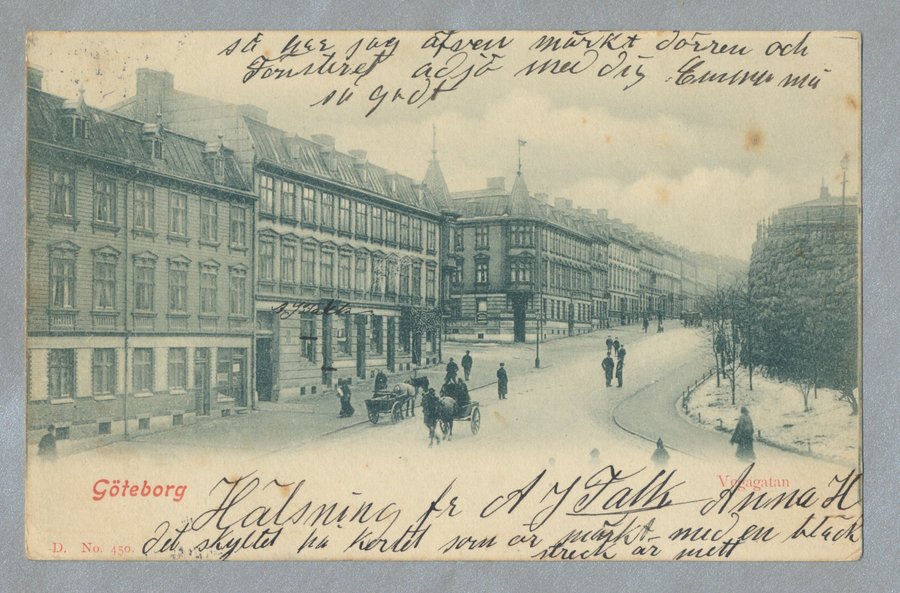 så her jag äfven märkt dörren och
Fönsteret adjö med dig Emma må
så godt
A J Falk
Göteborg
Vegagatan
Hälsning fr A J Falk Anna H
D. No. 450.
det skyltet på kortet som är märkt med en bläck
streck är mett